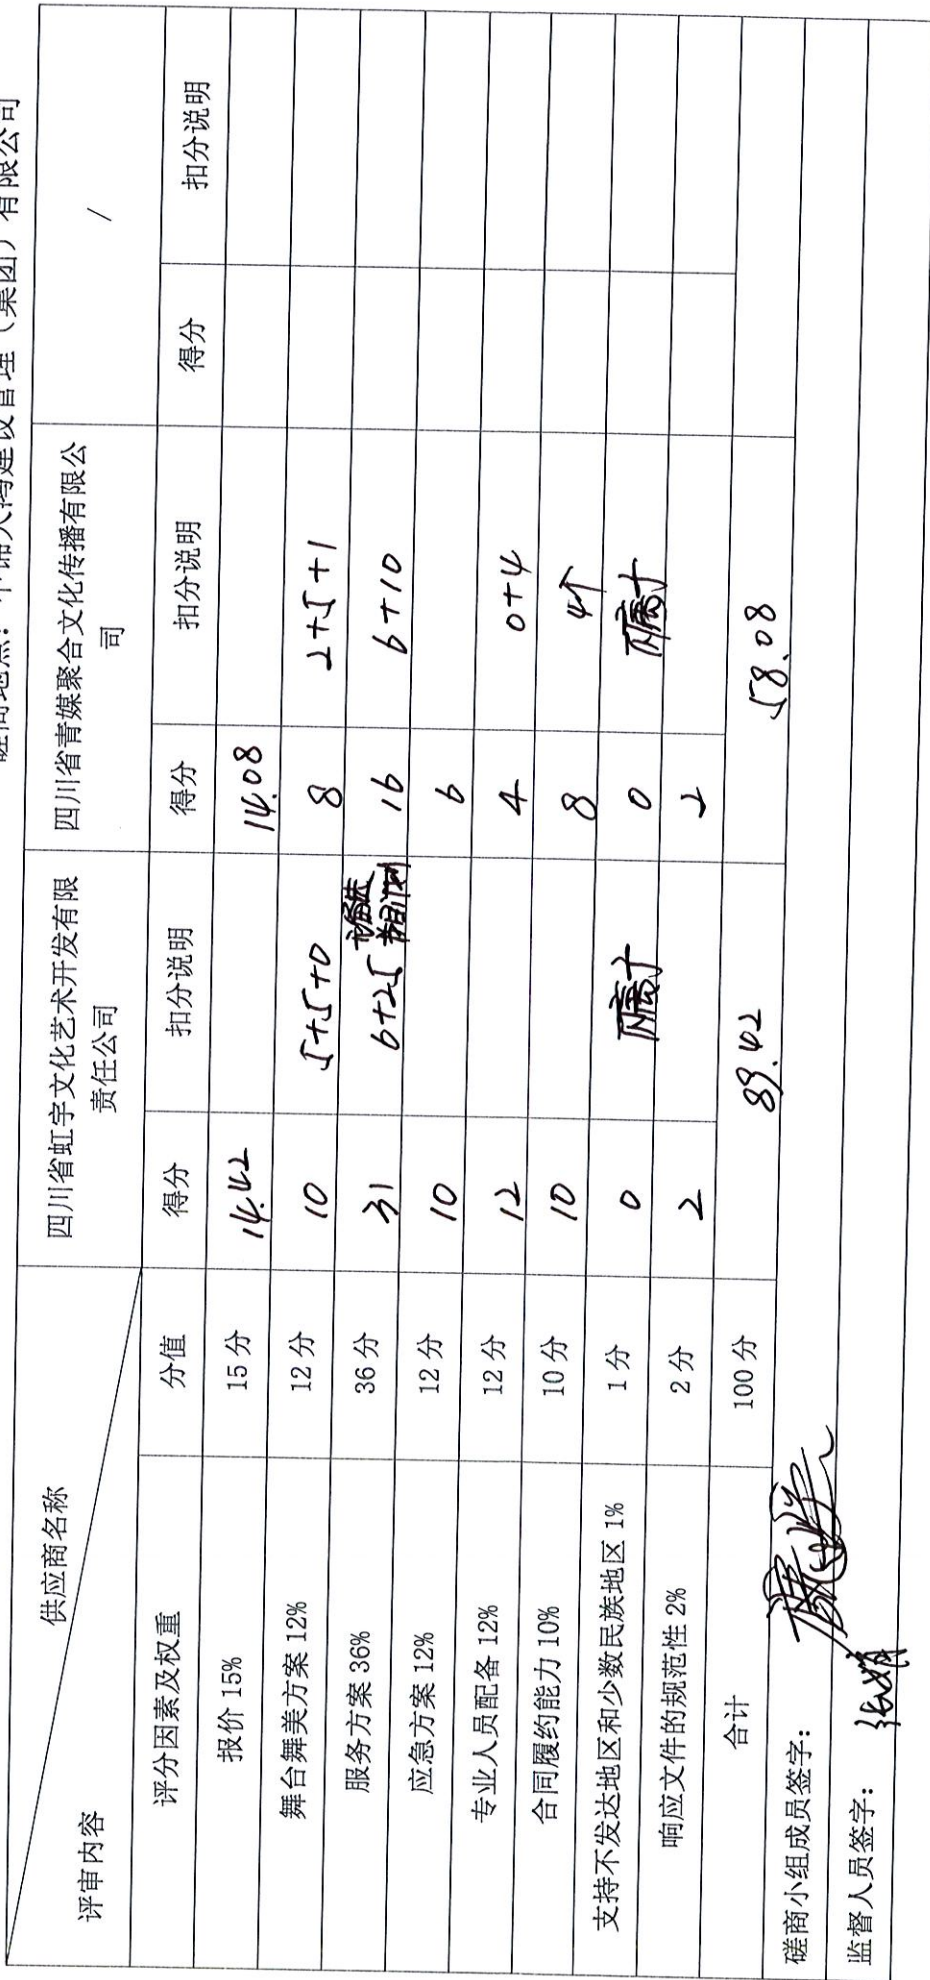 磋商地点：中锦天鸿建设管理（集团）有限公司
评审内容 供应商名称 四川省虹宇文化艺术开发有限责任公司 四川省青媒聚合文化传播有限公司 /
评分因素及权重 分值 得分 扣分说明 得分 扣分说明 得分 扣分说明
报价 15% 15 分 14.42 14.08
舞台舞美方案 12% 12 分 10 5+5+0 8 2+5+1
服务方案 36% 36 分 31 6+25 16 6+10
应急方案 12% 12 分 10 6
专业人员配备 12% 12 分 12 4 0+4
合同履约能力 10% 10 分 10 8 4个
支持不发达地区和少数民族地区 1% 1 分 0 不属于 0 不属于
响应文件的规范性 2% 2 分 2 2
合计 100 分 89.42 58.08
磋商小组成员签字：
监督人员签字：